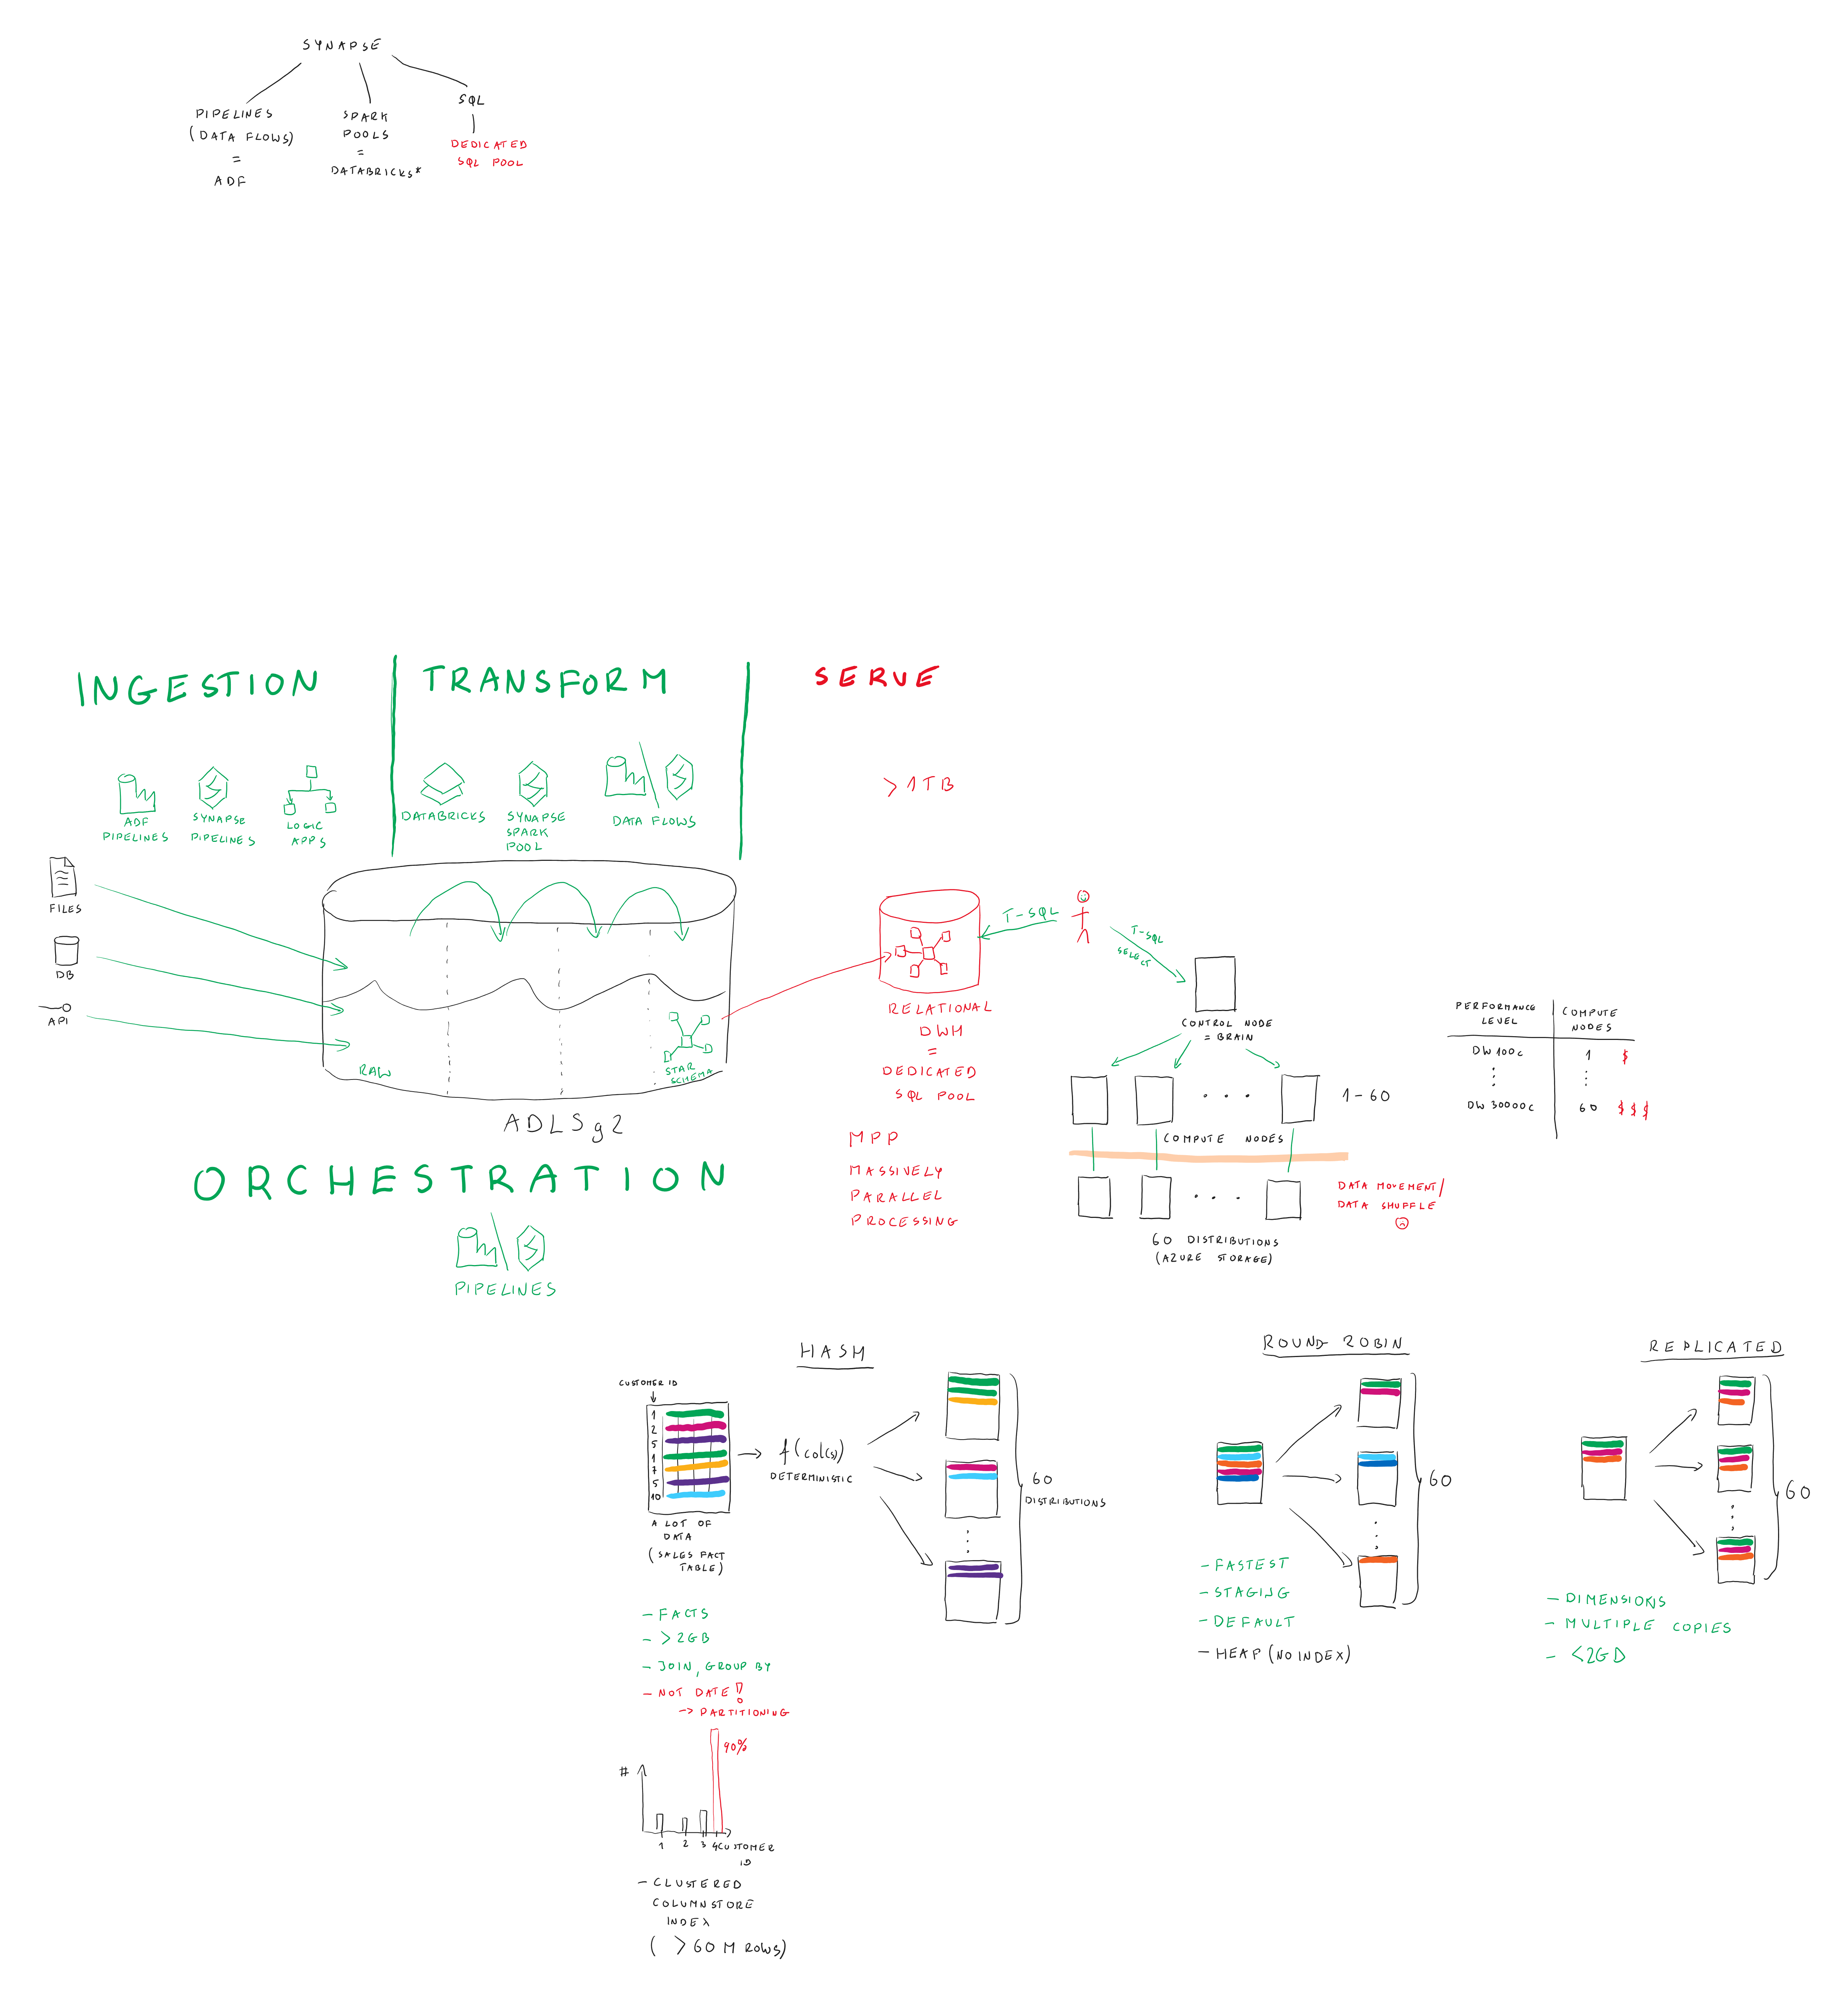 SYNAPSE
PIPELINES
(DATA FLOWS)
=
ADF
SPARK
POOLS
=
DATABRICKS*
SQL
DEDICATED
SQL POOL
INGESTION
TRANSFORM
SERVE
ADF
PIPELINES
SYNAPSE
PIPELINES
LOGIC
APPS
DATABRICKS
SYNAPSE
SPARK
POOL
DATA FLOWS
> 1TB
FILES
DB
API
RAW
STAR
SCHEMA
ADLSg2
ORCHESTRATION
PIPELINES
T-SQL
RELATIONAL
DWH
=
DEDICATED
SQL POOL
MPP
MASSIVELY
PARALLEL
PROCESSING
T-SQL
SELECT
CONTROL NODE
= BRAIN
1-60
COMPUTE NODES
60 DISTRIBUTIONS
(AZURE STORAGE)
DATA MOVEMENT/
DATA SHUFFLE
PERFORMANCE
LEVEL
COMPUTE
NODES
DW100c
1
$
DW30000c
60
$$$
HASH
CUSTOMER ID
1
2
5
1
7
5
10
A LOT OF
DATA
(SALES FACT
TABLE)
f(col(s))
DETERMINISTIC
60
DISTRIBUTIONS
- FACTS
- >2GB
- JOIN, GROUP BY
- NOT DATE!
-> PARTITIONING
90%
#
1 2 3 4
CUSTOMER
ID
- CLUSTERED
COLUMNSTORE
INDEX
( >60 M ROWS)
ROUND ROBIN
60
- FASTEST
- STAGING
- DEFAULT
- HEAP (NO INDEX)
REPLICATED
60
- DIMENSIONS
- MULTIPLE COPIES
- <2GD